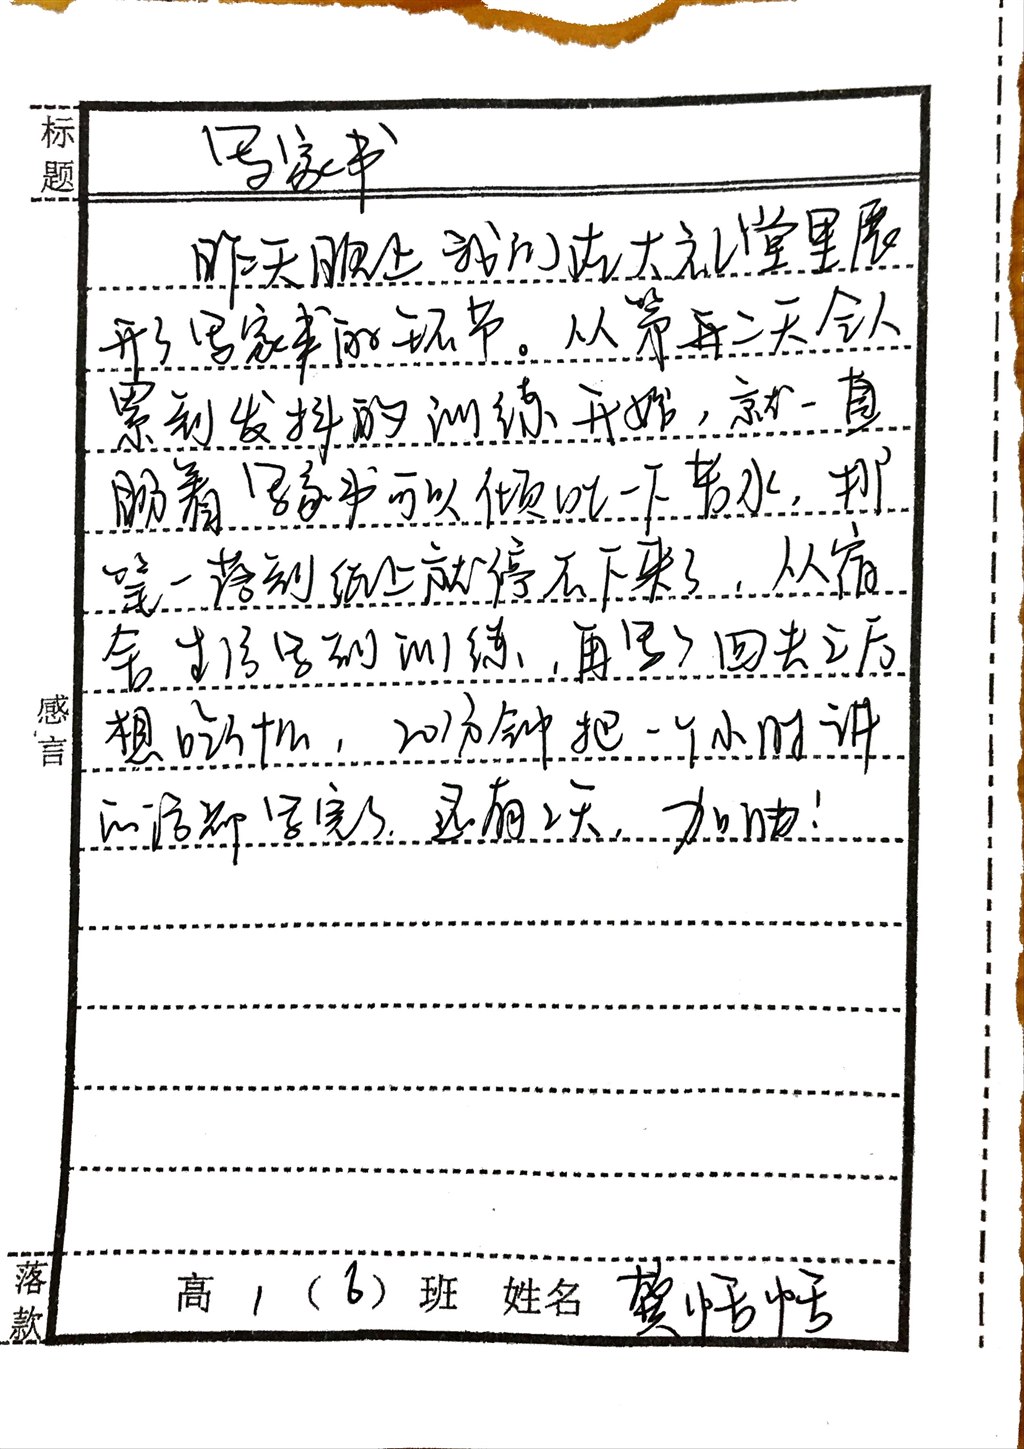 标题
写家书
昨天晚上我们在大礼堂里展
开了写家书的环节。从第二天令人
累到发抖的训练开始，就一直
盼着写家书可以倾吐一下苦水，那
笔一落到纸上就停不下来了，从宿
舍生活写到训练，再写了回去之后
想吃什么，20分钟把一个小时讲
的话都写完了。还有2天，加油！
感言
落款
高1（6）班 姓名 龚恬恬